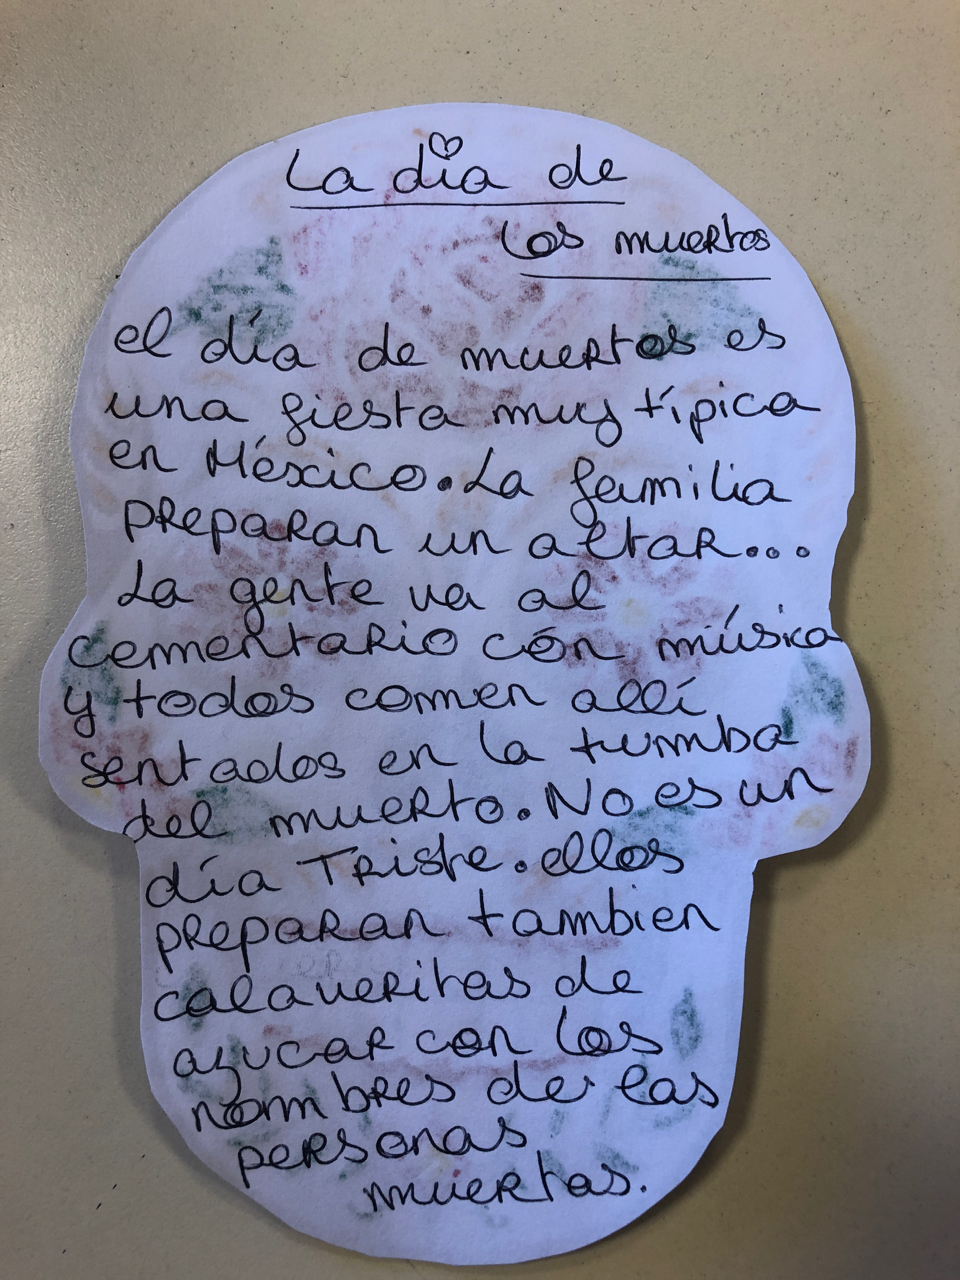 La día de
los muertos
el día de muertos es
una fiesta muy típica
en México. La familia
preparan un altar...
La gente va al
cementario cón música
y todos comen allí
sentados en la tumba
del muerto. No es un
día Triste. ellos
preparan tambien
calaveritas de
azucar con los
nombres de las
personas
muertas.